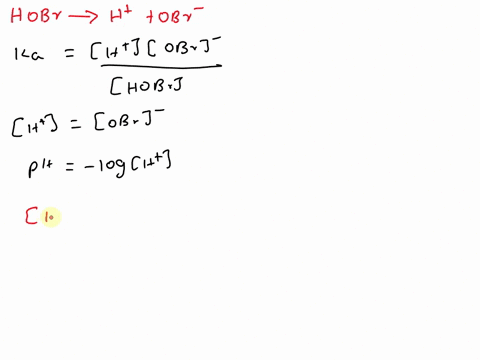 HOBr → H⁺ + OBr⁻
Ka = [H⁺][OBr]⁻
[HOBr]
[H⁺] = [OBr]⁻
pH = -log[H⁺]
[H